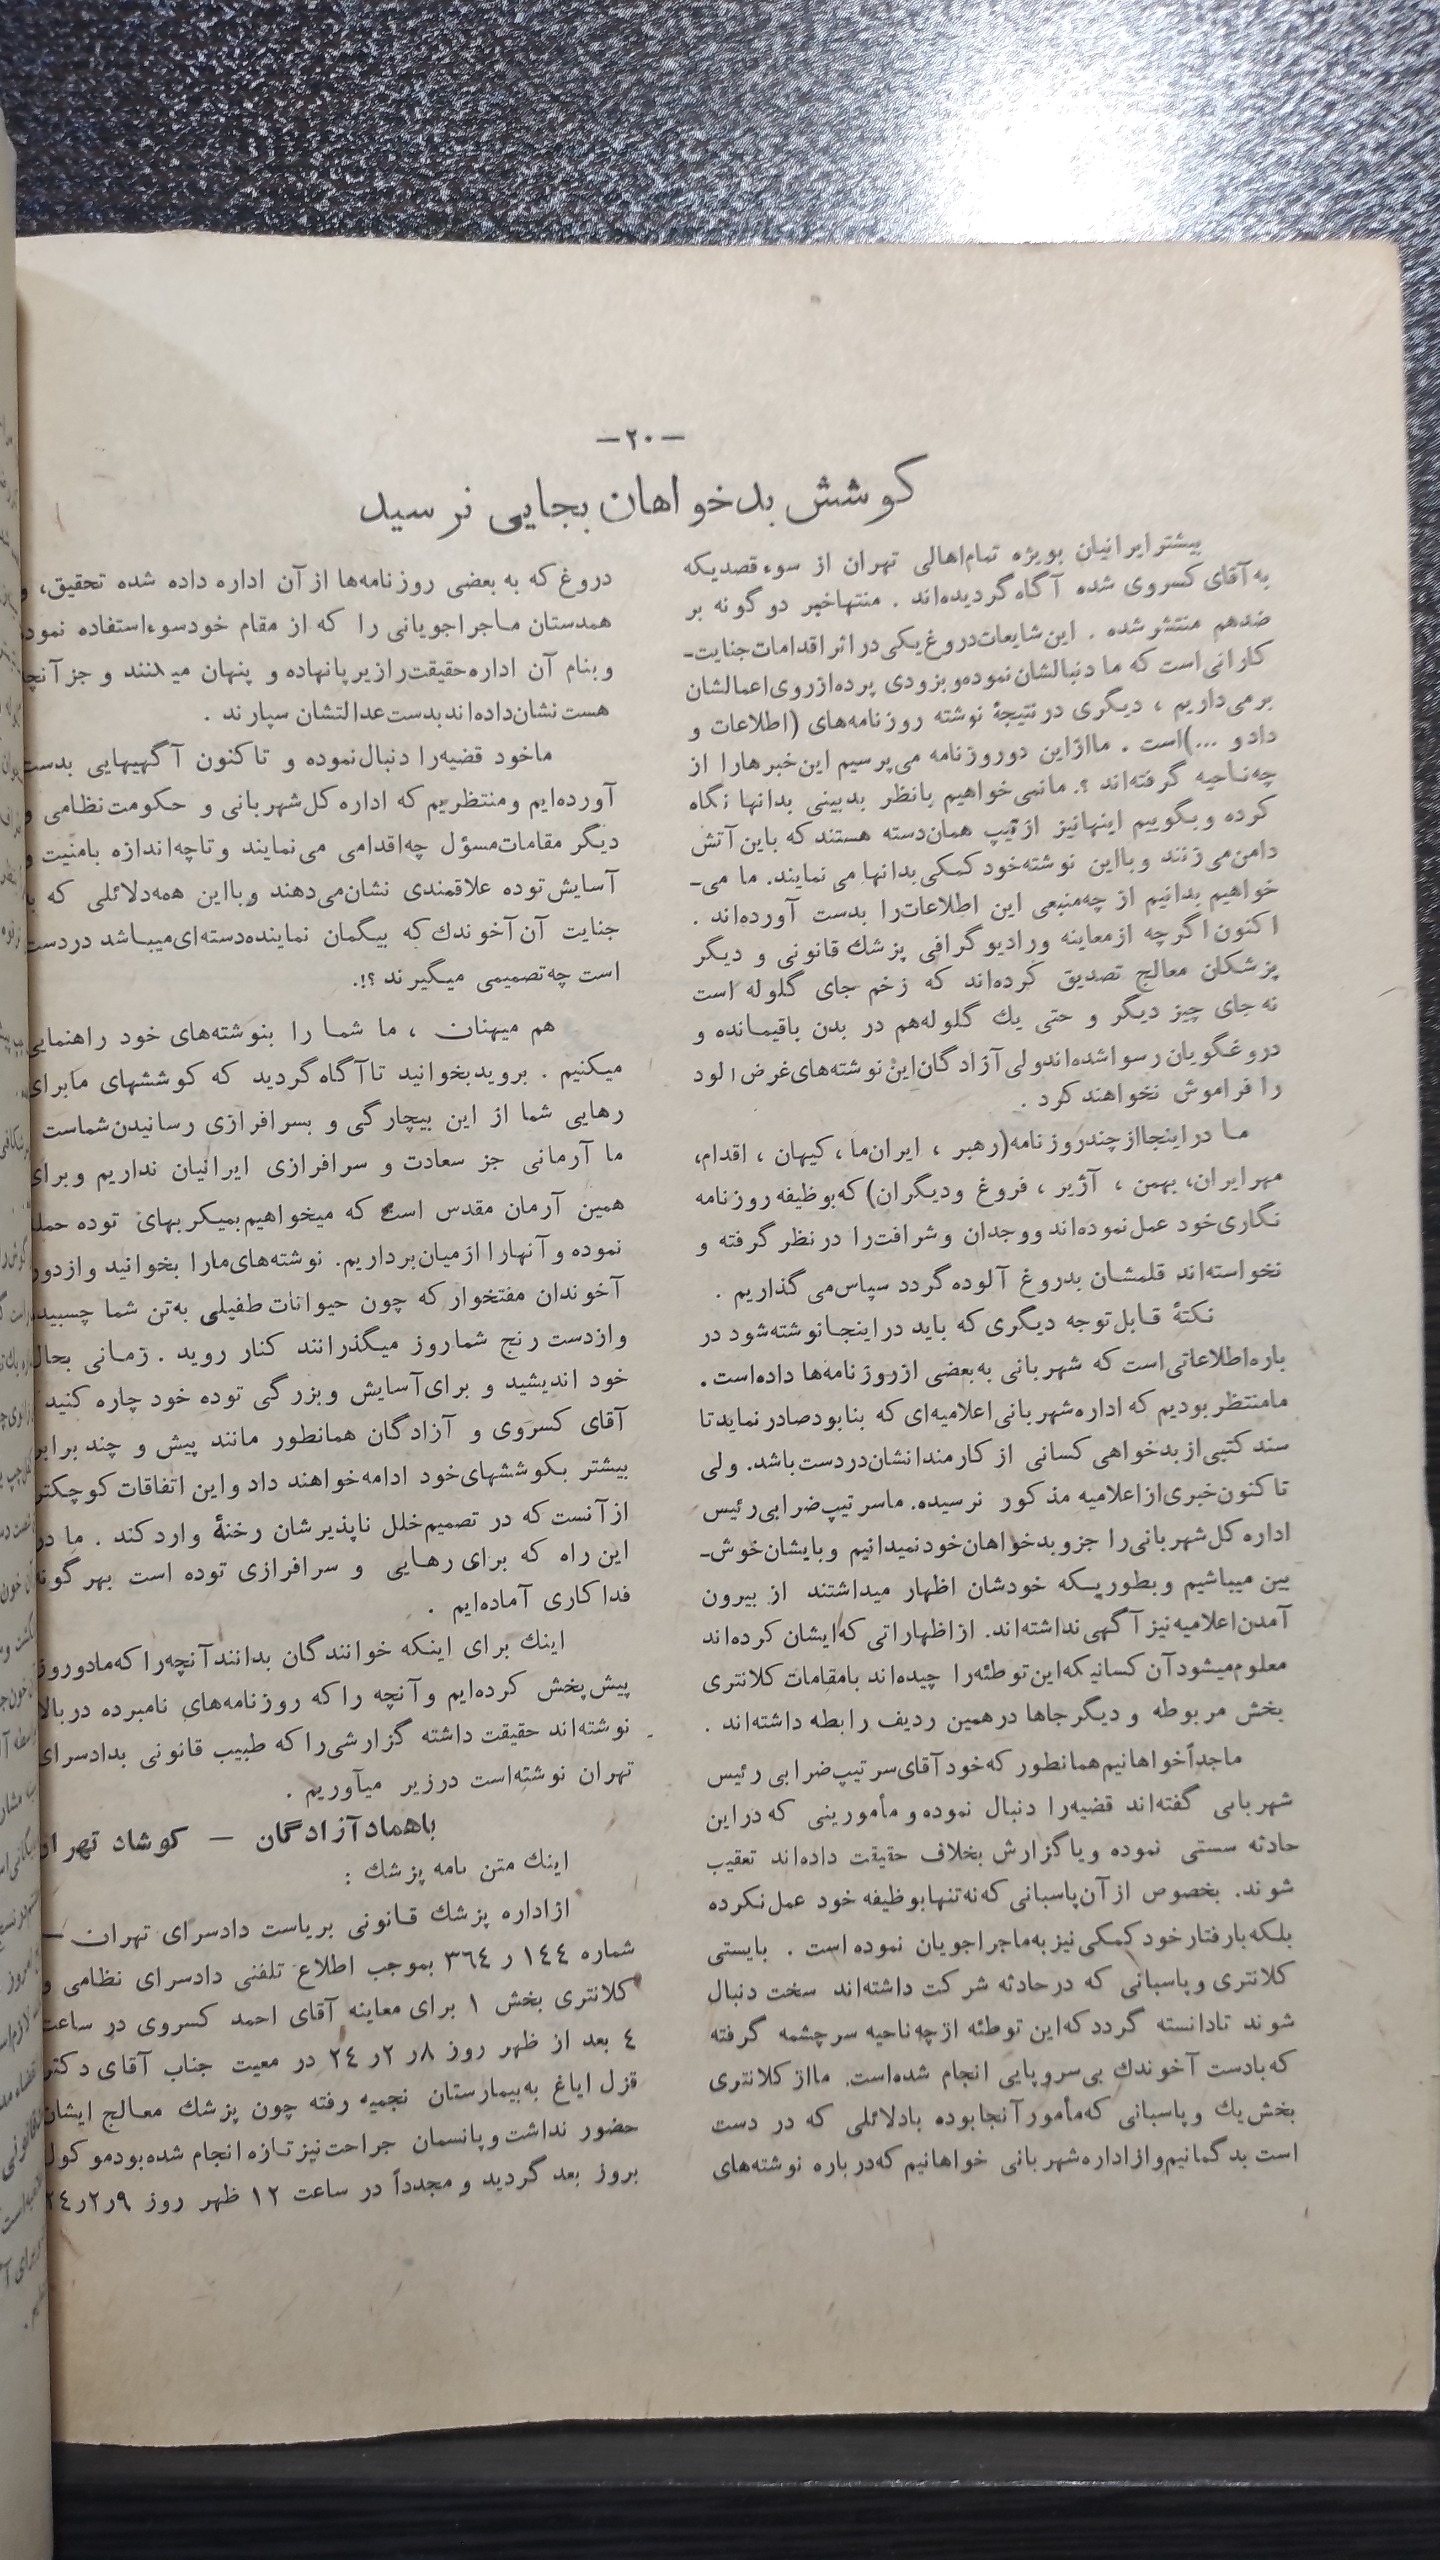 —۲۰—
کوشش بدخواهان بجایی نرسید
بیشتر ایرانیان بویژه تمام اهالی تهران از سوء قصدیکه
به آقای کسروی شده آگاه گردیده‌اند . منتها خبر دو گونه بر
ضد هم منتشر شده . این شایعات دروغ یکی در اثر اقدامات جنایت-
کارانی است که ما دنبالشان نموده و بزودی پرده از روی اعمالشان
برمی‌داریم ، دیگری در نتیجهٔ نوشته روزنامه‌های (اطلاعات و
داد و ...) است . ما از این دو روزنامه می‌پرسیم این خبرها را از
چه ناحیه گرفته‌اند ؟. ما نمی‌خواهیم بانظر بدبینی بدانها نگاه
کرده و بگوییم اینها نیز از تیپ همان دسته هستند که باین آتش
دامن می‌زنند و با این نوشته خود کمکی بدانها می نمایند. ما می-
خواهیم بدانیم از چه منبعی این اطلاعات را بدست آورده‌اند .
اکنون اگرچه از معاینه و رادیو گرافی پزشك قانونی و دیگر
پزشکان معالج تصدیق کرده‌اند که زخم جای گلوله است
نه جای چیز دیگر و حتی یك گلوله هم در بدن باقیمانده و
دروغگویان رسوا شده‌اند ولی آزادگان این نوشته‌های غرض الود
را فراموش نخواهند کرد .
ما در اینجا از چند روزنامه (رهبر ، ایران ما ، کیهان ، اقدام،
مهر ایران، بهمن ، آژیر ، فروغ و دیگران) که بوظیفه روزنامه
نگاری خود عمل نموده‌اند و وجدان و شرافت را در نظر گرفته و
نخواسته‌اند قلمشان بدروغ آلوده گردد سپاس می گذاریم .
نکتهٔ قابل توجه دیگری که باید در اینجا نوشته شود در
باره اطلاعاتی است که شهربانی به بعضی از روزنامه‌ها داده است .
ما منتظر بودیم که اداره شهربانی اعلامیه‌ای که بنا بود صادر نماید تا
سند کتبی از بدخواهی کسانی از کارمندانشان در دست باشد. ولی
تا کنون خبری از اعلامیه مذکور نرسیده. ما سرتیپ ضرابی رئیس
اداره کل شهربانی را جزو بدخواهان خود نمیدانیم و بایشان خوش-
بین میباشیم و بطوریکه خودشان اظهار میداشتند از بیرون
آمدن اعلامیه نیز آگهی نداشته‌اند. از اظهاراتی که ایشان کرده‌اند
معلوم میشود آن کسانیکه این توطئه را چیده‌اند بامقامات کلانتری
بخش مربوطه و دیگر جاها درهمین ردیف رابطه داشته‌اند .
ما جداً خواهانیم همانطور که خود آقای سرتیپ ضرابی رئیس
شهربانی گفته‌اند قضیه را دنبال نموده و مأمورینی که در این
حادثه سستی نموده و یا گزارش بخلاف حقیقت داده‌اند تعقیب
شوند. بخصوص از آن پاسبانی که نه تنها بوظیفه خود عمل نکرده
بلکه بارفتار خود کمکی نیز به ماجراجویان نموده است . بایستی
کلانتری و پاسبانی که در حادثه شرکت داشته‌اند سخت دنبال
شوند تا دانسته گردد که این توطئه از چه ناحیه سرچشمه گرفته
که بادست آخوندك بی‌سروپایی انجام شده است. ما از کلانتری
بخش یك و پاسبانی که مأمور آنجا بوده بادلائلی که در دست
است بد گمانیم و از اداره شهربانی خواهانیم که درباره نوشته‌های
دروغ که به بعضی روزنامه‌ها از آن اداره داده شده تحقیق، و
همدستان ماجراجویانی را که از مقام خود سوء استفاده نموده
و بنام آن اداره حقیقت را زیر پا نهاده و پنهان میکنند و جز آنچه
هست نشان داده‌اند بدست عدالتشان سپارند .
ما خود قضیه را دنبال نموده و تا کنون آگهیهایی بدست
آورده‌ایم و منتظریم که اداره کل شهربانی و حکومت نظامی و
دیگر مقامات مسؤل چه اقدامی می‌نمایند و تا چه اندازه بامنیت و
آسایش توده علاقمندی نشان می‌دهند و با این همه دلائلی که
جنایت آن آخوندك که بیگمان نماینده دسته‌ای میباشد در دست
است چه تصمیمی میگیرند ؟!.
هم میهنان ، ما شما را بنوشته‌های خود راهنمایی
میکنیم . بروید بخوانید تا آگاه گردید که کوششهای ما برای
رهایی شما از این بیچارگی و بسرافرازی رسانیدن شماست
ما آرمانی جز سعادت و سرافرازی ایرانیان نداریم و برای
همین آرمان مقدس است که میخواهیم بمیکربهای توده حمله
نموده و آنها را از میان برداریم. نوشته‌های ما را بخوانید و از دور
آخوندان مفتخوار که چون حیوانات طفیلی به تن شما چسبیده
و از دست رنج شما روز میگذرانند کنار روید . زمانی بحال
خود اندیشید و برای آسایش و بزرگی توده خود چاره کنید
آقای کسروی و آزادگان همانطور مانند پیش و چند برابر
بیشتر بکوششهای خود ادامه خواهند داد و این اتفاقات کوچکتر
از آنست که در تصمیم خلل ناپذیرشان رخنهٔ وارد کند . ما در
این راه که برای رهایی و سرافرازی توده است بهر گونه
فداکاری آماده‌ایم .
اینك برای اینکه خوانندگان بدانند آنچه را که ما دو روز
پیش پخش کرده‌ایم و آنچه را که روزنامه‌های نامبرده در بالا
نوشته‌اند حقیقت داشته گزارشی را که طبیب قانونی بدادسرای
تهران نوشته است در زیر میآوریم .
باهماد آزادگان — کوشاد تهران
اینك متن نامه پزشك :
از اداره پزشك قانونی بریاست دادسرای تهران —
شماره ١٤٤ ر ٣٦٤ بموجب اطلاع تلفنی دادسرای نظامی و
کلانتری بخش ١ برای معاینه آقای احمد کسروی در ساعت
٤ بعد از ظهر روز ٨ر٢ر٢٤ در معیت جناب آقای دکتر
قزل ایاغ به بیمارستان نجمیه رفته چون پزشك معالج ایشان
حضور نداشت و پانسمان جراحت نیز تازه انجام شده بود موکول
بروز بعد گردید و مجدداً در ساعت ١٢ ظهر روز ٩ر٢ر٢٤